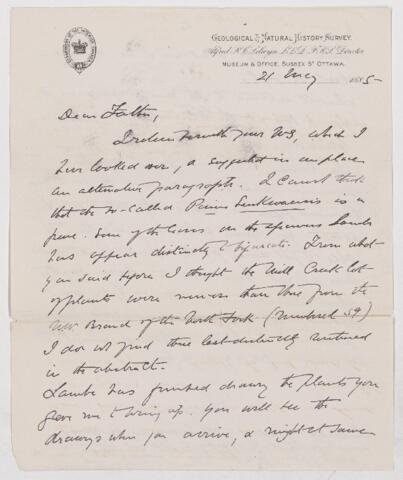 GEOLOGICAL & NATURAL HISTORY SURVEY.
Alfred R. C. Selwyn, L.L.D. F.R.S. Director
MUSEUM & OFFICE, SUSSEX ST OTTAWA.
21 May 1885
Dear Father,
I return herewith your MS, which I
have looked over, & suggested in one place
an alternative paragraph. I cannot think
that the so-called Pinus Suskwaensis is a
pine. Some of the leaves on the specimens Lambe
has appear distinctly to bifurcate. From what
you said before I thought the Mill Creek lot
of plants were newer than those from the
NW Branch of the North Fork (numbered 59)
I do not find these last distinctly mentioned
in the abstract.
Lambe has finished drawing the plants you
gave me to bring up. You will see the
drawings when you arrive, & might at same